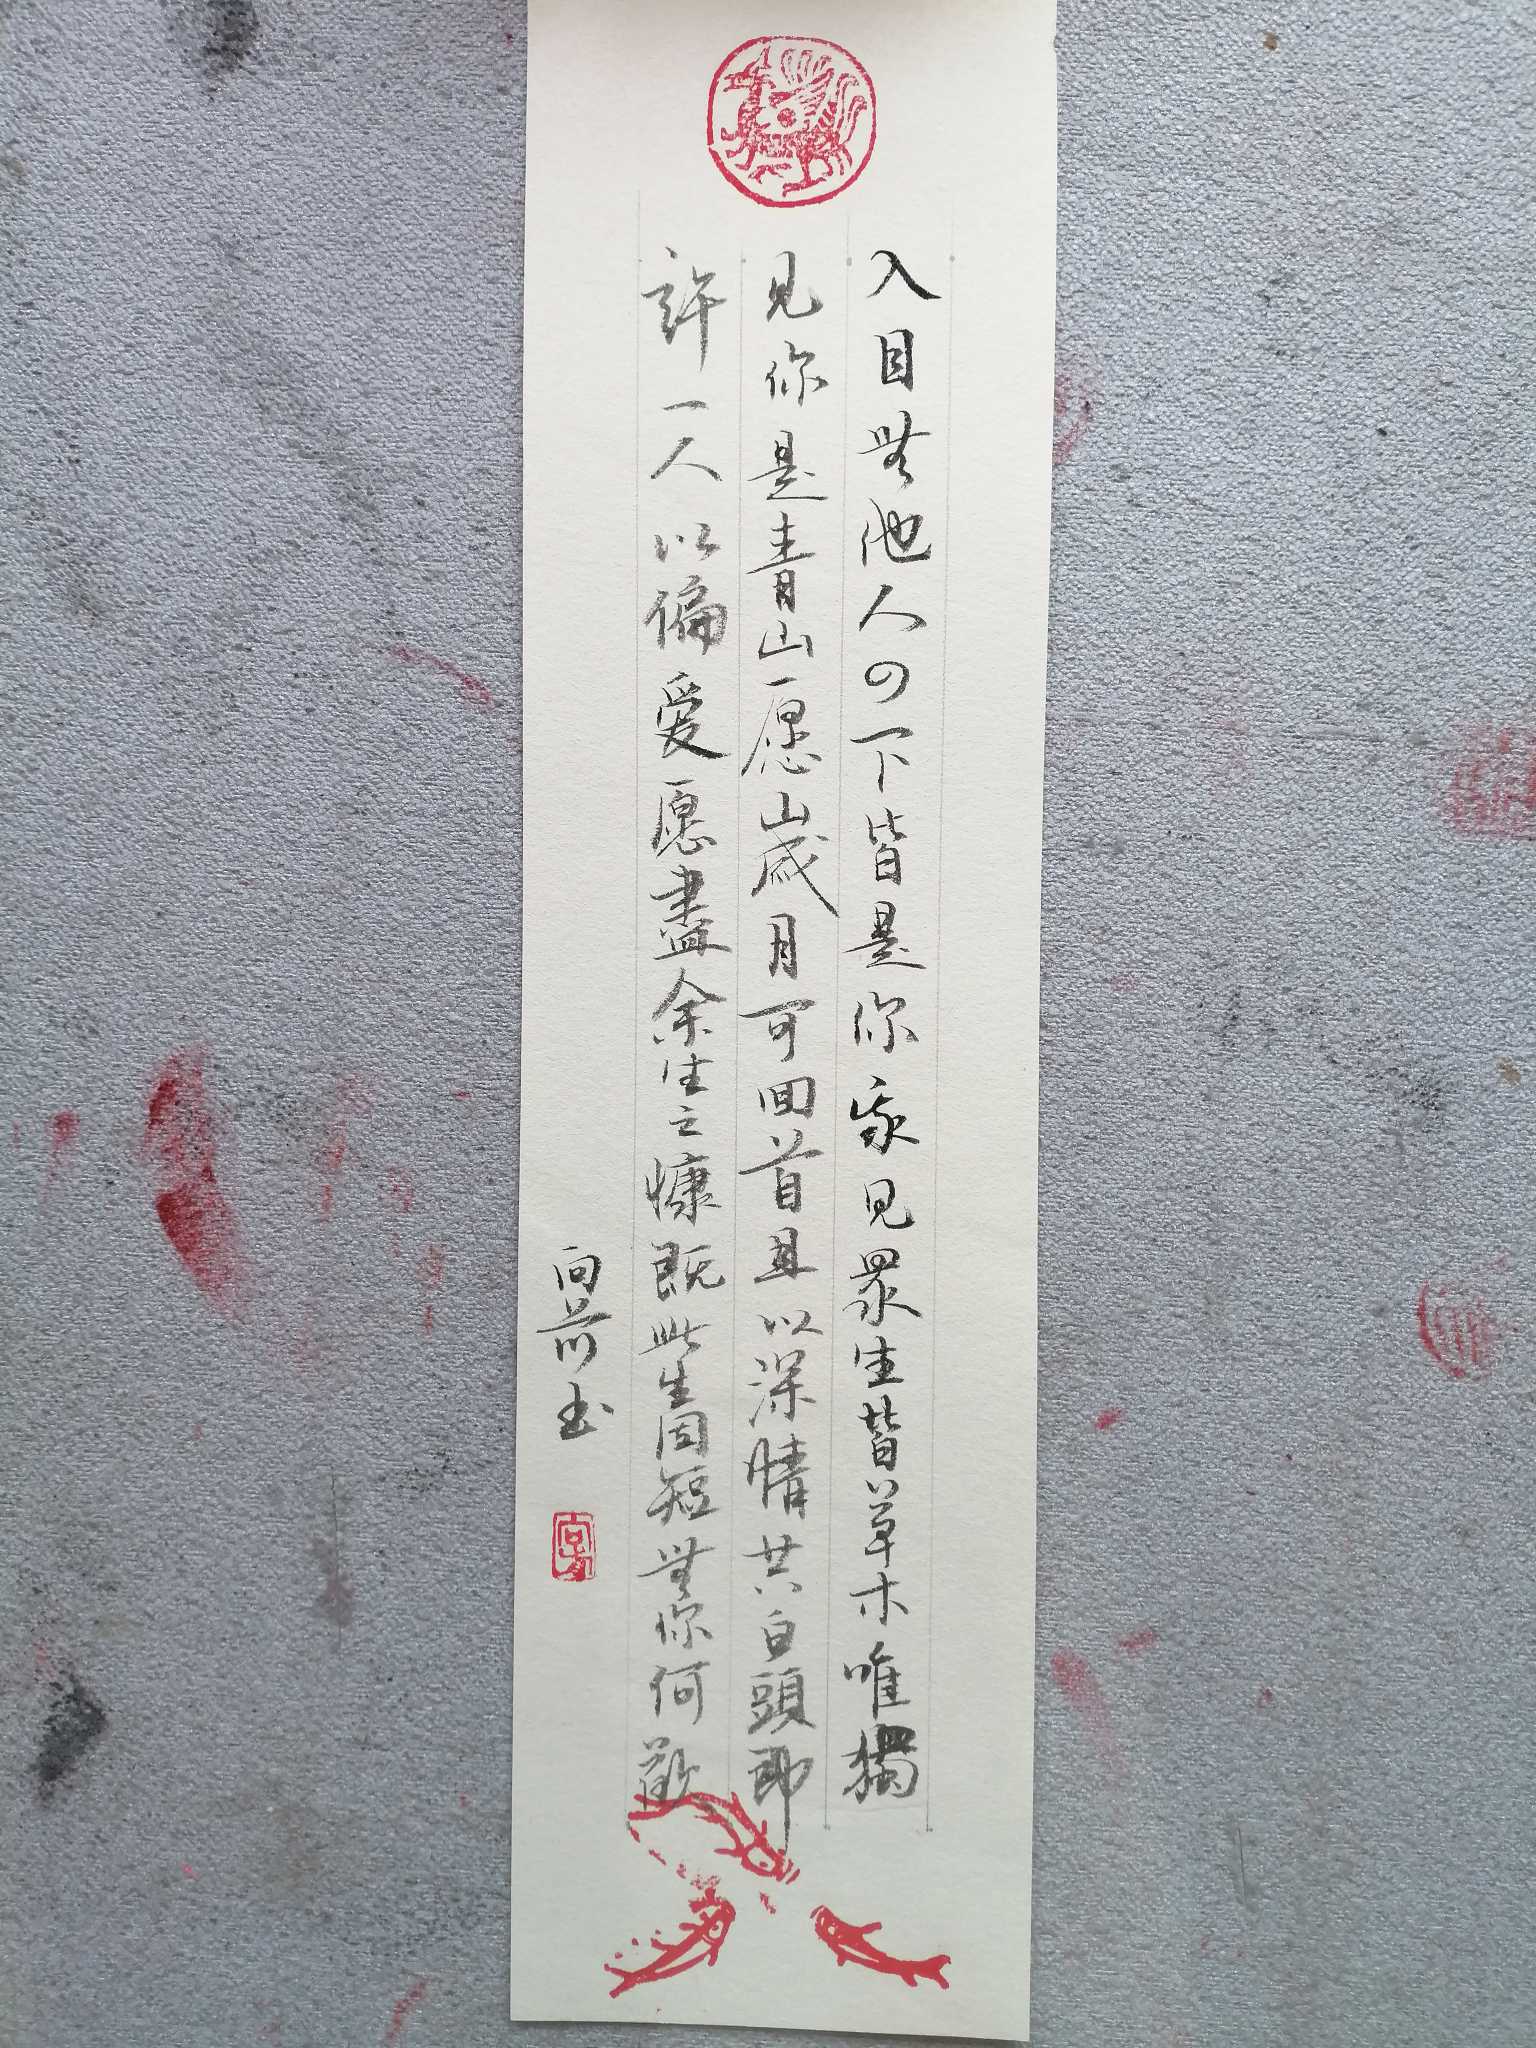 入目無他人四下皆是你我見眾生皆草木唯獨
見你是青山愿歲月可回首且以深情共白頭即
許一人以偏愛愿盡余生之慷既此生固短無你何歡
向前書